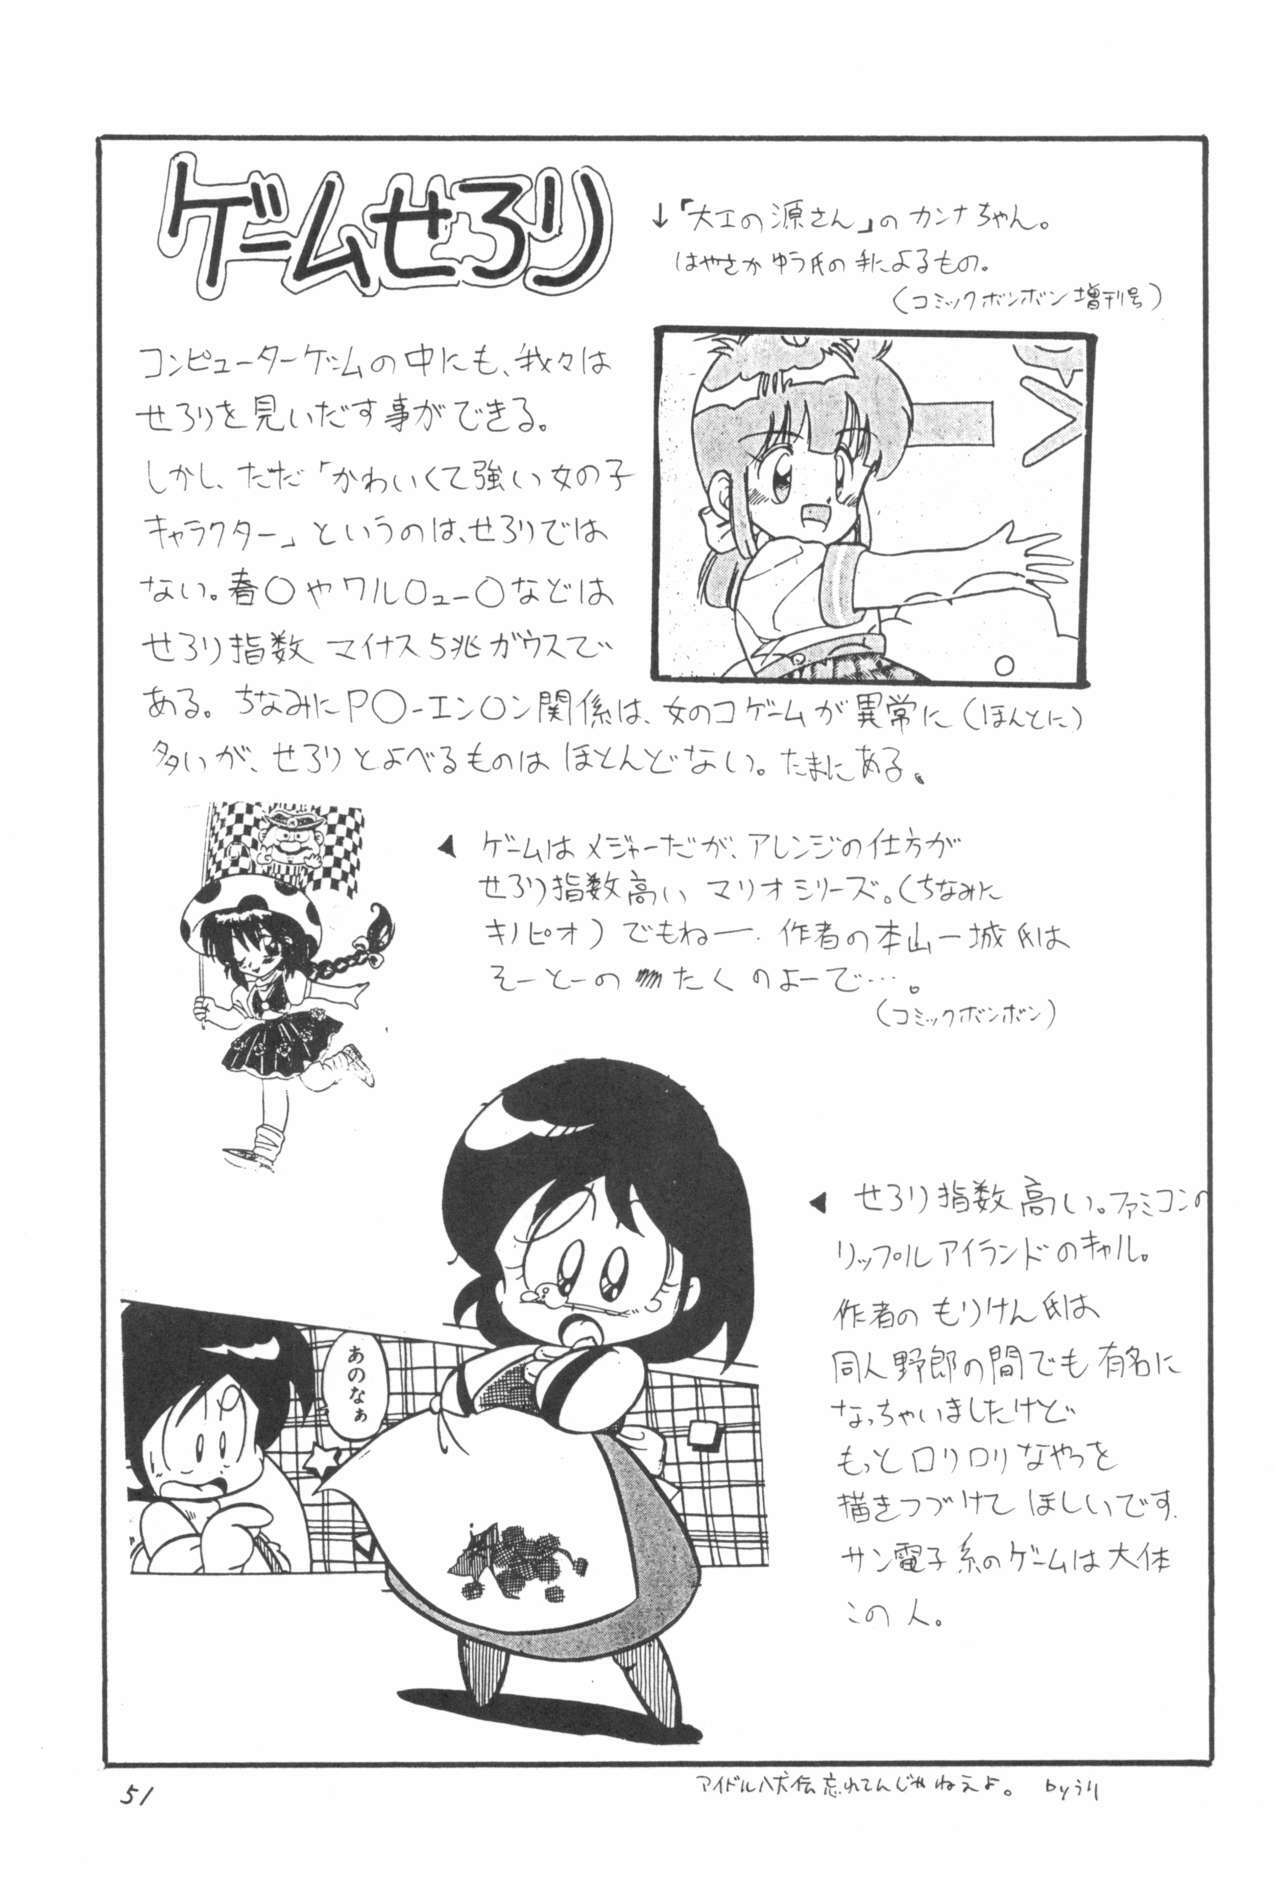 ゲームせろり
↓「大工の源さん」のカンナちゃん。
はやさかゆう氏の手によるもの。
(コミックボンボン増刊号)
コンピューターゲームの中にも、我々は
せろりを見いだす事ができる。
しかし、ただ「かわいくて強い女の子
キャラクター」というのは、せろりでは
ない。春〇やワル〇ュー〇などは
せろり指数マイナス5兆ガウスで
ある。ちなみにP〇-エン〇ン関係は、女のコゲームが異常に(ほんとに)
多いが、せろりとよべるものはほとんどない。たまにある。
◀ ゲームはメジャーだが、アレンジの仕方が
せろり指数高いマリオシリーズ。(ちなみに
キノピオ)でもねー.作者の本山一城氏は
そーとーのたくのよーで…。
(コミックボンボン)
◀ せろり指数高い。ファミコンの
リップルアイランドのキャル。
作者のもりけん氏は
同人野郎の間でも有名に
なっちゃいましたけど
もっとロリロリなやつを
描きつづけてほしいです.
サン電子系のゲームは大体
この人。
あのなぁ
51
アイドル八犬伝忘れてんじゃねえよ。 byうり